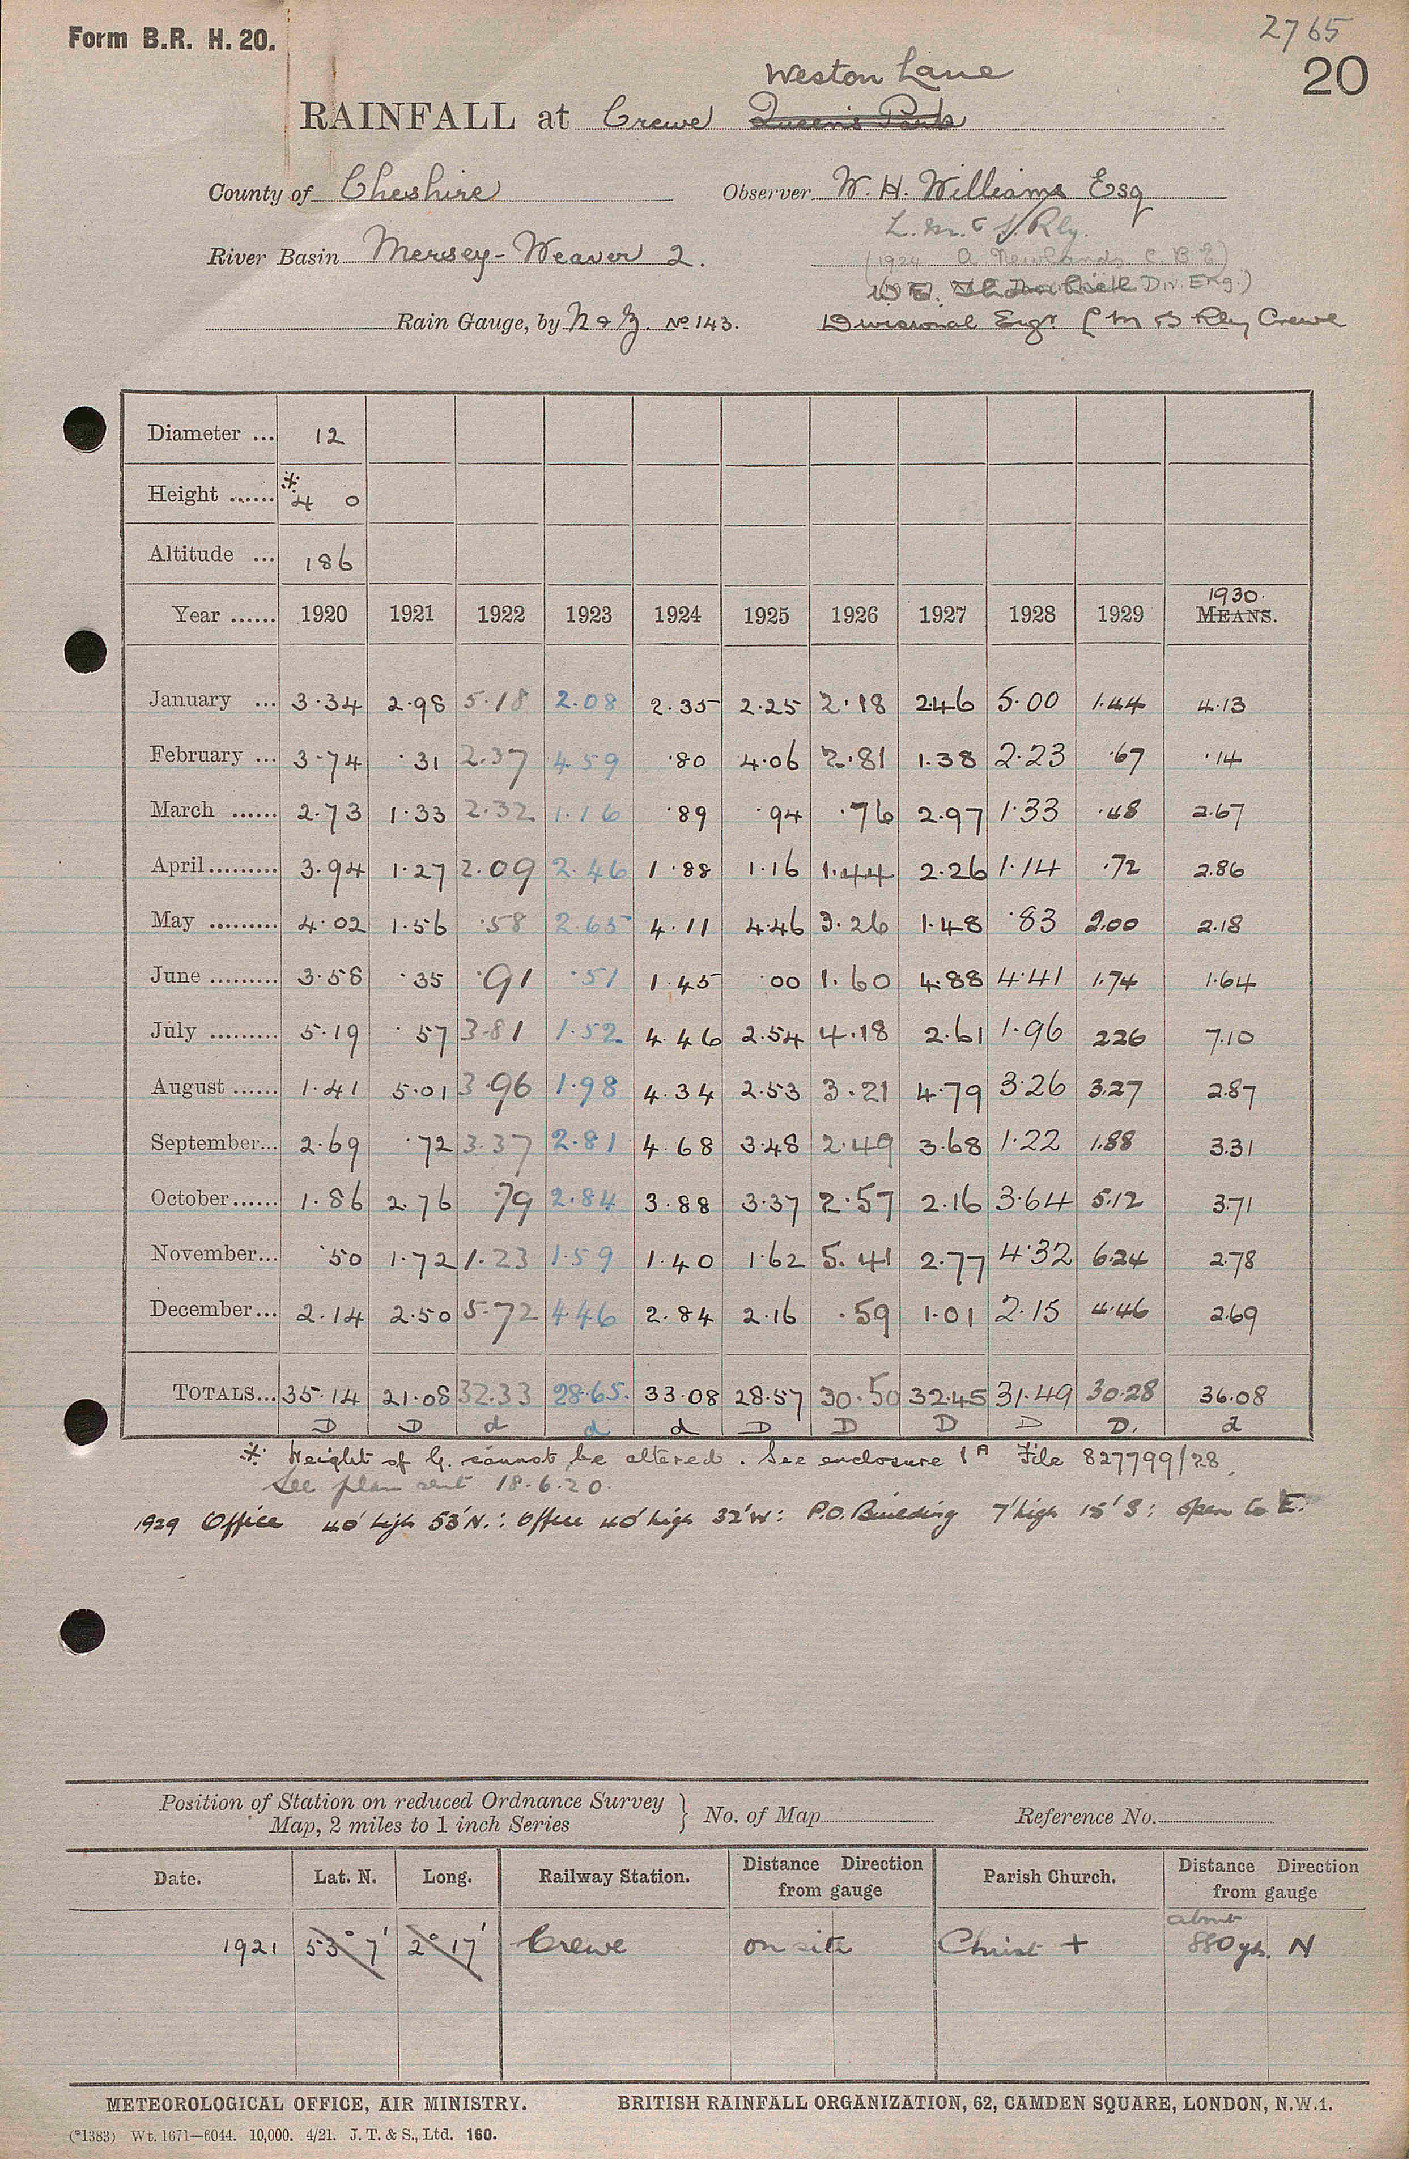 Form B.R. H. 20.
2765
20
Weston Lane
RAINFALL at Crewe Queen's Park
County of Cheshire Observer W. H. Williams Esq
L. M. & S. Rly.
River Basin Mersey-Weaver 2.
(1924 A Newlands C. B. E)
Div. Eng.)
Rain Gauge, by N & Z. No 143. Divisional Engr L M S Rly Crewe
Diameter ... 12
Height ...... * 4 0
Altitude ... 186
1930.
Year ...... 1920 1921 1922 1923 1924 1925 1926 1927 1928 1929 MEANS.
January ... 3.34 2.98 5.18 2.08 2.35 2.25 2.18 2.46 5.00 1.44 4.13
February ... 3.74 .31 2.37 4.59 .80 4.06 2.81 1.38 2.23 .67 .14
March ...... 2.73 1.33 2.32 1.16 .89 .94 .76 2.97 1.33 .48 2.67
April......... 3.94 1.27 2.09 2.46 1.88 1.16 1.44 2.26 1.14 .72 2.86
May ......... 4.02 1.56 .58 2.65 4.11 4.46 3.26 1.48 .83 2.00 2.18
June ......... 3.58 .35 .91 .51 1.45 .00 1.60 4.88 4.41 1.74 1.64
July ......... 5.19 .57 3.81 1.52 4.46 2.54 4.18 2.61 1.96 2.26 7.10
August ...... 1.41 5.01 3.96 1.98 4.34 2.53 3.21 4.79 3.26 3.27 2.87
September... 2.69 .72 3.37 2.81 4.68 3.48 2.49 3.68 1.22 1.88 3.31
October...... 1.86 2.76 .79 2.84 3.88 3.37 2.57 2.16 3.64 5.12 3.71
November... .50 1.72 1.23 1.59 1.40 1.62 5.41 2.77 4.32 6.24 2.78
December... 2.14 2.50 5.72 4.46 2.84 2.16 .59 1.01 2.15 4.46 2.69
TOTALS... 35.14 21.08 32.33 28.65. 33.08 28.57 30.50 32.45 31.49 30.28 36.08
D D d d d D D D D D. d
* Height of G. cannot be altered. See enclosure 1A File 827799/28.
See plan sent 18.6.20.
1929 Office 40' high 53' N.: Office 40' high 32' W: P.O. Building 7' high 15' S: open to E.
Position of Station on reduced Ordnance Survey
Map, 2 miles to 1 inch Series } No. of Map Reference No.
Date. Lat. N. Long. Railway Station. Distance Direction from gauge Parish Church. Distance Direction from gauge
about
1921 53° 7' 2° 17' Crewe on site Christ + 880 yds. N
METEOROLOGICAL OFFICE, AIR MINISTRY. BRITISH RAINFALL ORGANIZATION, 62, CAMDEN SQUARE, LONDON, N.W.1.
(*1383) Wt. 1671—6044. 10,000. 4/21. J. T. & S., Ltd. 160.